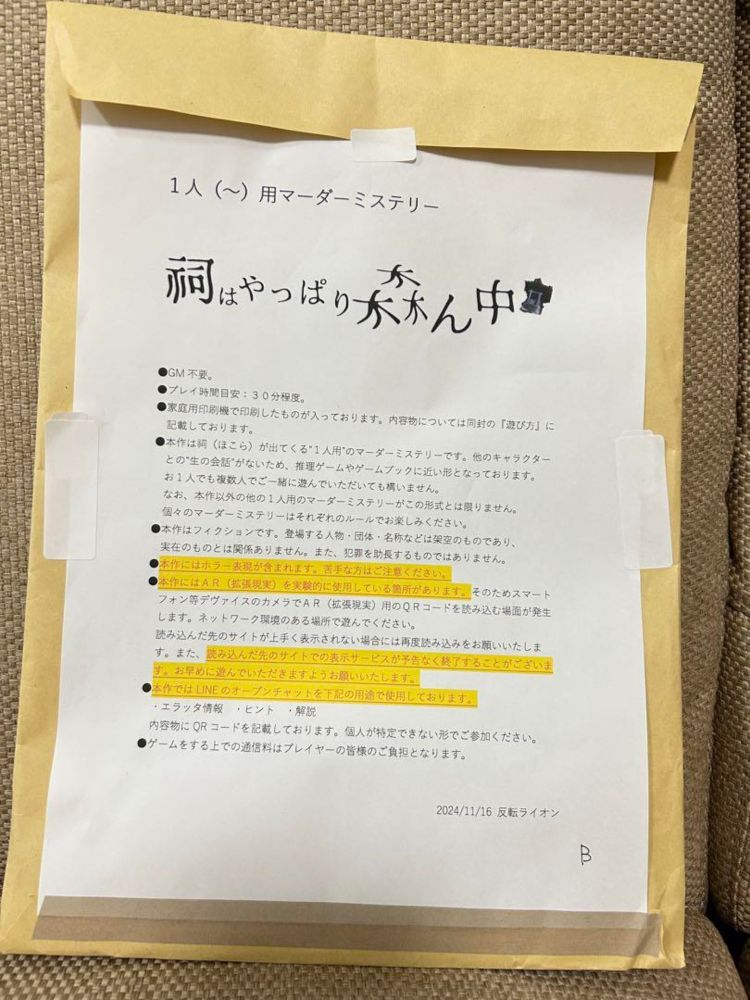 １人（～）用マーダーミステリー
祠はやっぱり森ん中
●GM 不要。
●プレイ時間目安：３０分程度。
●家庭用印刷機で印刷したものが入っております。内容物については同封の『遊び方』に
記載しております。
●本作は祠（ほこら）が出てくる“１人用”のマーダーミステリーです。他のキャラクター
との“生の会話”がないため、推理ゲームやゲームブックに近い形となっております。
お１人でも複数人でご一緒に遊んでいただいても構いません。
なお、本作以外の他の１人用のマーダーミステリーがこの形式とは限りません。
個々のマーダーミステリーはそれぞれのルールでお楽しみください。
●本作はフィクションです。登場する人物・団体・名称などは架空のものであり、
実在のものとは関係ありません。また、犯罪を助長するものではありません。
●本作にはホラー表現が含まれます。苦手な方はご注意ください。
●本作にはＡＲ（拡張現実）を実験的に使用している箇所があります。そのためスマート
フォン等デヴァイスのカメラでＡＲ（拡張現実）用のＱＲコードを読み込む場面が発生
します。ネットワーク環境のある場所で遊んでください。
読み込んだ先のサイトが上手く表示されない場合には再度読み込みをお願いいたしま
す。また、読み込んだ先のサイトでの表示サービスが予告なく終了することがございま
す。お早めに遊んでいただきますようお願いいたします。
●本作では LINE のオープンチャットを下記の用途で使用しております。
・エラッタ情報　・ヒント　・解説
内容物に QR コードを記載しております。個人が特定できない形でご参加ください。
●ゲームをする上での通信料はプレイヤーの皆様のご負担となります。
2024/11/16 反転ライオン
B